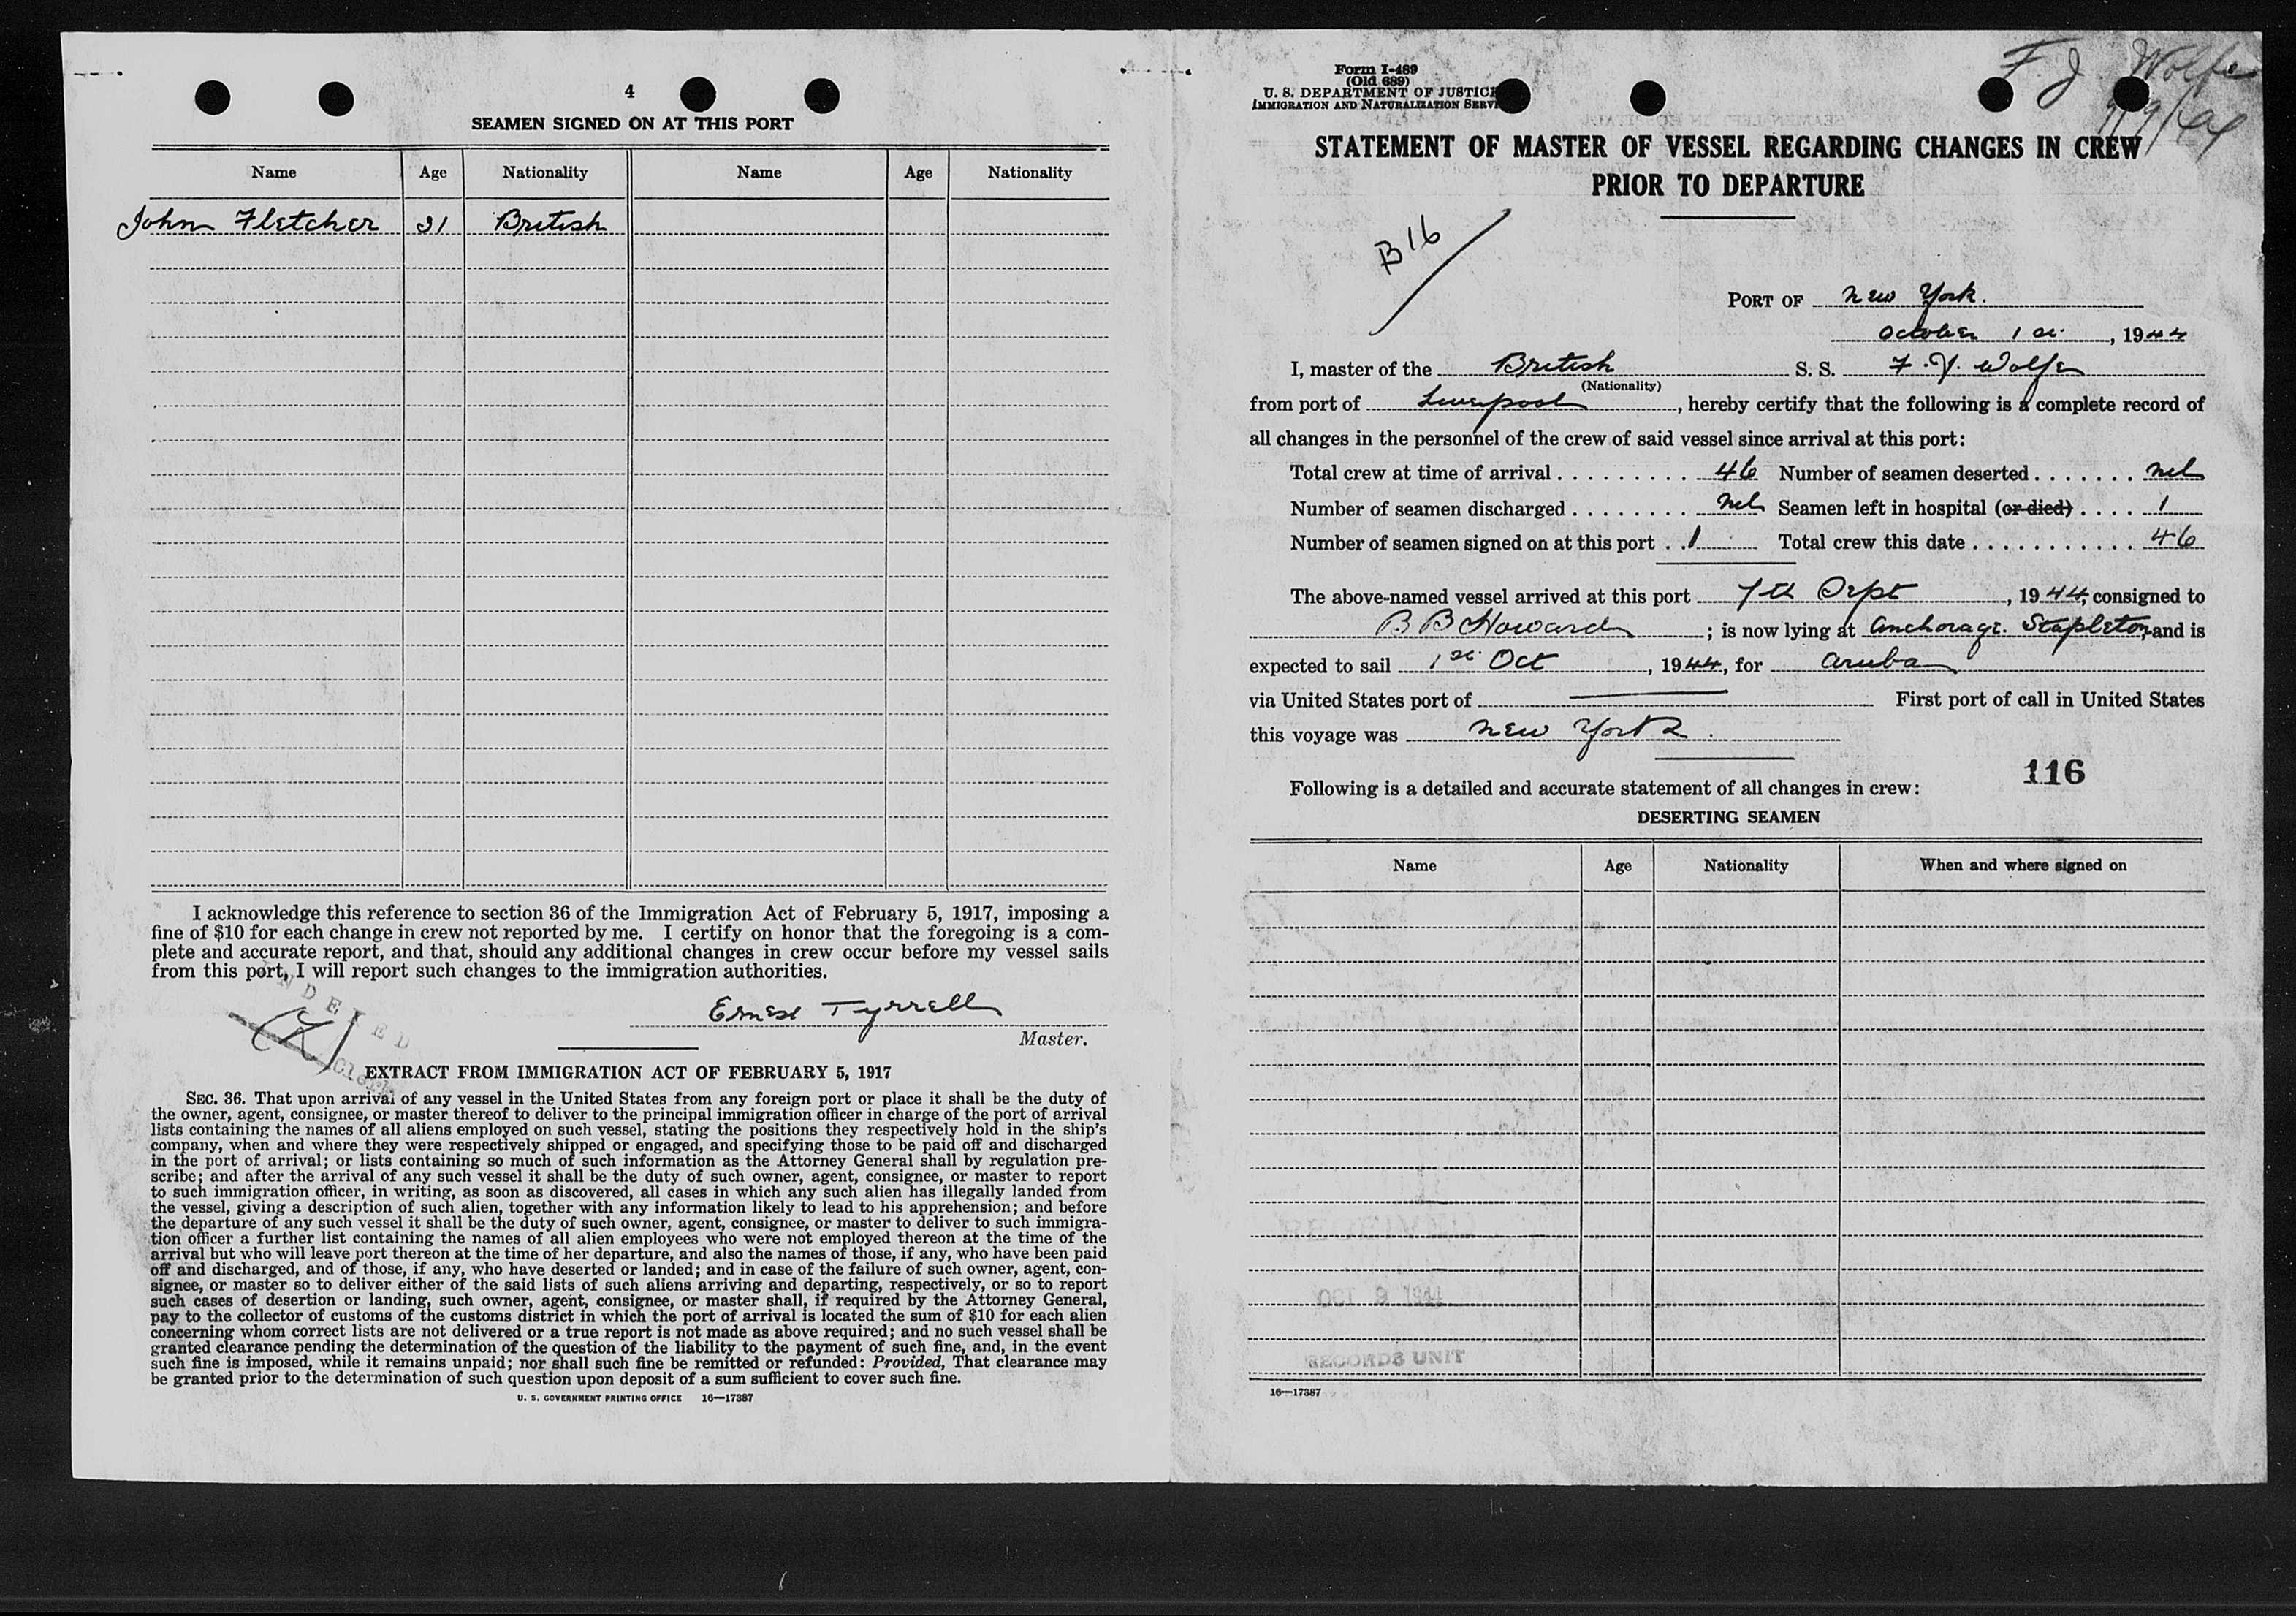 4
SEAMEN SIGNED ON AT THIS PORT
Name Age Nationality Name Age Nationality
John Fletcher 31 British
I acknowledge this reference to section 36 of the Immigration Act of February 5, 1917, imposing a
fine of $10 for each change in crew not reported by me. I certify on honor that the foregoing is a com-
plete and accurate report, and that, should any additional changes in crew occur before my vessel sails
from this port, I will report such changes to the immigration authorities.
Ernest Tyrrell
Master.
Clerk
EXTRACT FROM IMMIGRATION ACT OF FEBRUARY 5, 1917
SEC. 36. That upon arrival of any vessel in the United States from any foreign port or place it shall be the duty of
the owner, agent, consignee, or master thereof to deliver to the principal immigration officer in charge of the port of arrival
lists containing the names of all aliens employed on such vessel, stating the positions they respectively hold in the ship's
company, when and where they were respectively shipped or engaged, and specifying those to be paid off and discharged
in the port of arrival; or lists containing so much of such information as the Attorney General shall by regulation pre-
scribe; and after the arrival of any such vessel it shall be the duty of such owner, agent, consignee, or master to report
to such immigration officer, in writing, as soon as discovered, all cases in which any such alien has illegally landed from
the vessel, giving a description of such alien, together with any information likely to lead to his apprehension; and before
the departure of any such vessel it shall be the duty of such owner, agent, consignee, or master to deliver to such immigra-
tion officer a further list containing the names of all alien employees who were not employed thereon at the time of the
arrival but who will leave port thereon at the time of her departure, and also the names of those, if any, who have been paid
off and discharged, and of those, if any, who have deserted or landed; and in case of the failure of such owner, agent, con-
signee, or master so to deliver either of the said lists of such aliens arriving and departing, respectively, or so to report
such cases of desertion or landing, such owner, agent, consignee, or master shall, if required by the Attorney General,
pay to the collector of customs of the customs district in which the port of arrival is located the sum of $10 for each alien
concerning whom correct lists are not delivered or a true report is not made as above required; and no such vessel shall be
granted clearance pending the determination of the question of the liability to the payment of such fine, and, in the event
such fine is imposed, while it remains unpaid; nor shall such fine be remitted or refunded: Provided, That clearance may
be granted prior to the determination of such question upon deposit of a sum sufficient to cover such fine.
U. S. GOVERNMENT PRINTING OFFICE 16—17387
Form I-489
(Old 689)
U. S. DEPARTMENT OF JUSTICE
IMMIGRATION AND NATURALIZATION SERVI
F. J Wolfe
9/9/44
STATEMENT OF MASTER OF VESSEL REGARDING CHANGES IN CREW
PRIOR TO DEPARTURE
B 16
PORT OF New York.
October 1st, 1944
I, master of the British S. S. F. J. Wolfe
(Nationality)
from port of Liverpool, hereby certify that the following is a complete record of
all changes in the personnel of the crew of said vessel since arrival at this port:
Total crew at time of arrival . . . . . . . . . 46 Number of seamen deserted . . . . . . . nil
Number of seamen discharged . . . . . . . . nil Seamen left in hospital (or died) . . . . 1
Number of seamen signed on at this port . . 1 Total crew this date . . . . . . . . . . . . 46
The above-named vessel arrived at this port 7th Sept, 1944, consigned to
B B Howard; is now lying at Anchorage. Stapleton, and is
expected to sail 1st Oct, 1944, for Aruba
via United States port of ——— First port of call in United States
this voyage was New York.
116
Following is a detailed and accurate statement of all changes in crew:
DESERTING SEAMEN
Name Age Nationality When and where signed on
RECORDS UNIT
16—17387